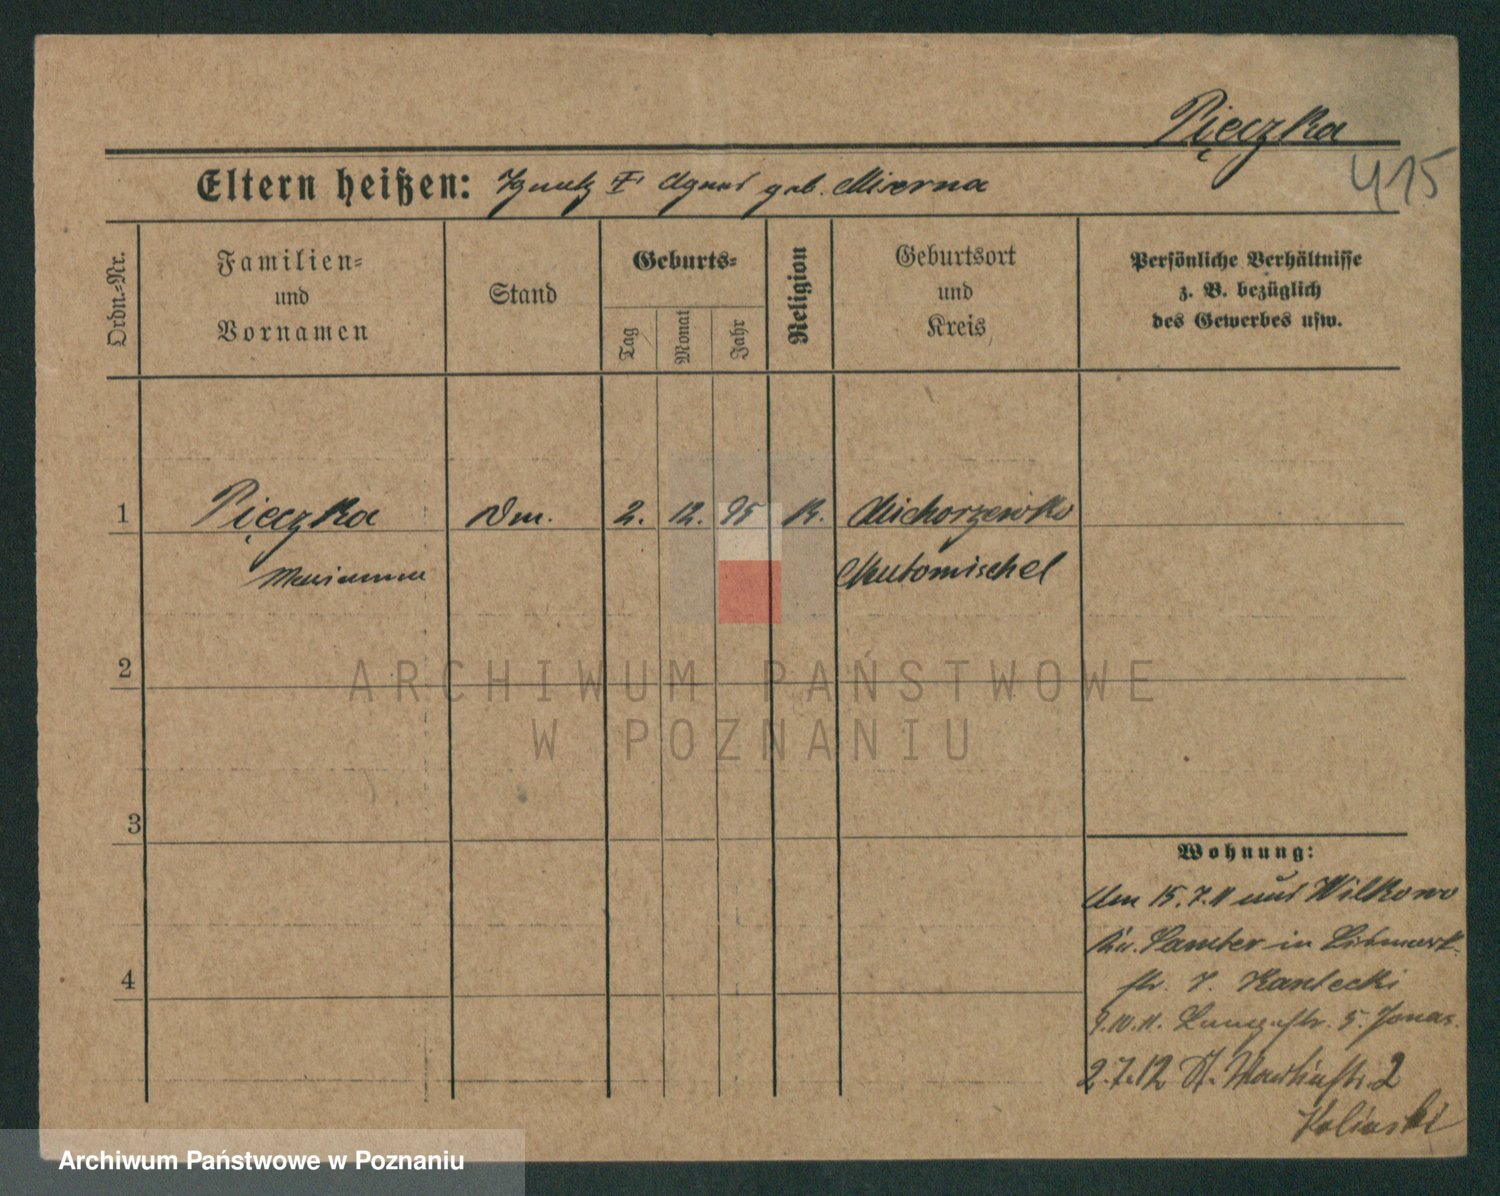 Pięczka
415
Eltern heißen: Ignatz † Agnes geb. Mierna
Ordn.-Nr.
Familien-
und
Vornamen
Stand
Geburts-
Tag
Monat
Jahr
Religion
Geburtsort
und
Kreis
Persönliche Verhältnisse
z. B. bezüglich
des Gewerbes usw.
1 Pięczka Dm. 2. 12. 95 k. Michorzewko
Marianna Neutomischel
2
ARCHIWUM PAŃSTWOWE
W POZNANIU
3
Wohnung:
Am 15.7.11 aus Wilkowo
Kr. Samter in Bismark-
str. 7. Kantecki
9.10.11. Langestr. 5. Jonas.
4
2.7.12 St. Martinstr. 2
Kolinski
Archiwum Państwowe w Poznaniu